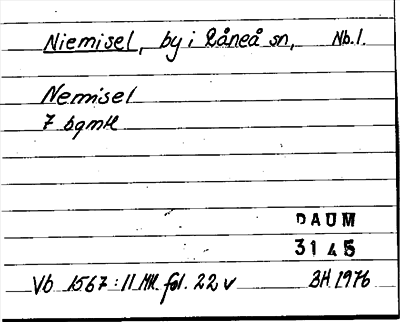 Niemisel, by i Råneå sn, Nb.l.
Nemisel
7 bgmH
DAUM
3145
Vb 1567:11 HH. fol. 22 v BH 1976